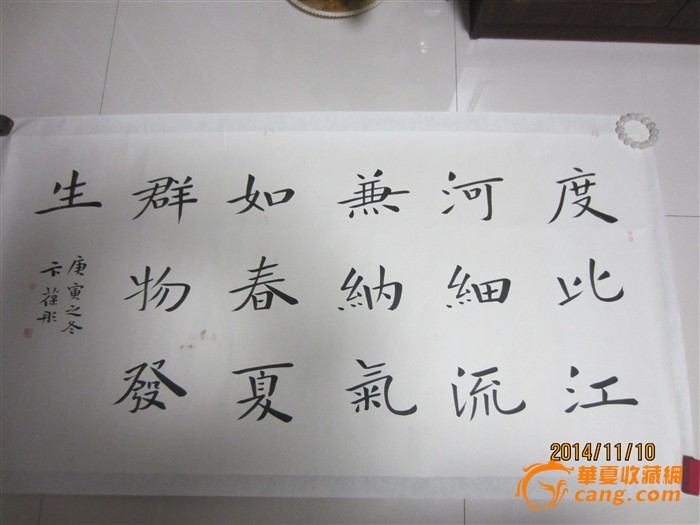 度比江
河細流
兼納氣
如春夏
群物發
生
庚寅之冬
卞葆彤
2014/11/10
華夏收藏網
cang.com